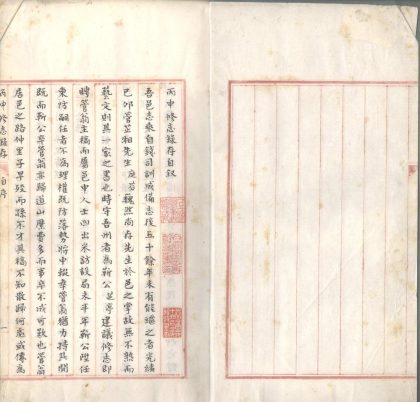 丙申修志錄存自叙
吾邑志乘自錢司訓成備志後五十餘年未有能繼之者光緒
己卯管芷湘先生庭芬巍然尚存先生於邑之掌故無不熟而
藝文則其一家之書也時守吾州者為靳公芝亭建議修志即
聘管翁主稿而屬邑中人士四出采訪設局未半年靳公陞任
東防嗣任者不為理權既防落勢將中輟幸管翁猶力持其間
既而靳公卒管翁亦歸道山糜費多而事卒不成可歎也管翁
居邑之路仲里子早歿而孫不才其稿不知散歸何處或傳為
丙申修志錄存 自序 一